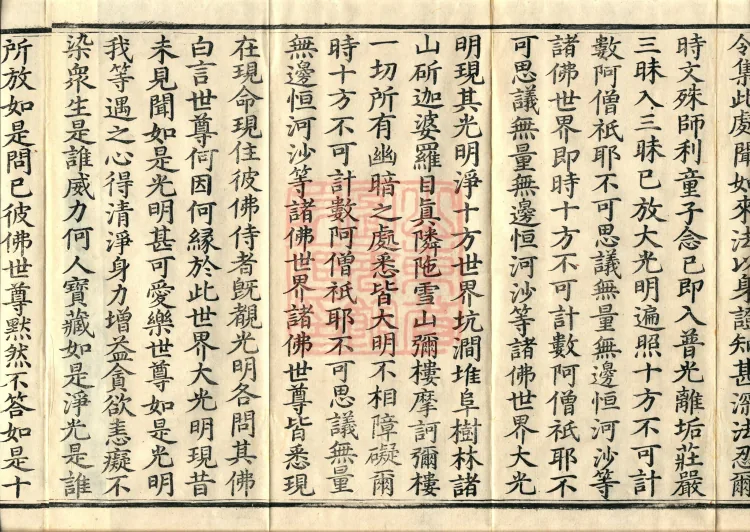 令集此處聞如來法以身證知甚深法忍爾
時文殊師利童子念已即入普光離垢莊嚴
三昧入三昧已放大光明遍照十方不可計
數阿僧祇耶不可思議無量無邊恒河沙等
諸佛世界即時十方不可計數阿僧祇耶不
可思議無量無邊恒河沙等諸佛世界大光
明現其光明淨十方世界坑澗堆阜樹林諸
山斫迦婆羅目真隣陁雪山彌樓摩訶彌樓
一切所有幽暗之處悉皆大明不相障礙爾
時十方不可計數阿僧祇耶不可思議無量
無邊恒河沙等諸佛世界諸佛世尊皆悉現
在現命現住彼佛侍者既覩光明各問其佛
白言世尊何因何緣於此世界大光明現昔
未見聞如是光明甚可愛樂世尊如是光明
我等遇之心得清淨身力增益貪欲恚癡不
染衆生是誰威力何人寶藏如是淨光是誰
所放如是問已彼佛世尊默然不答如是十